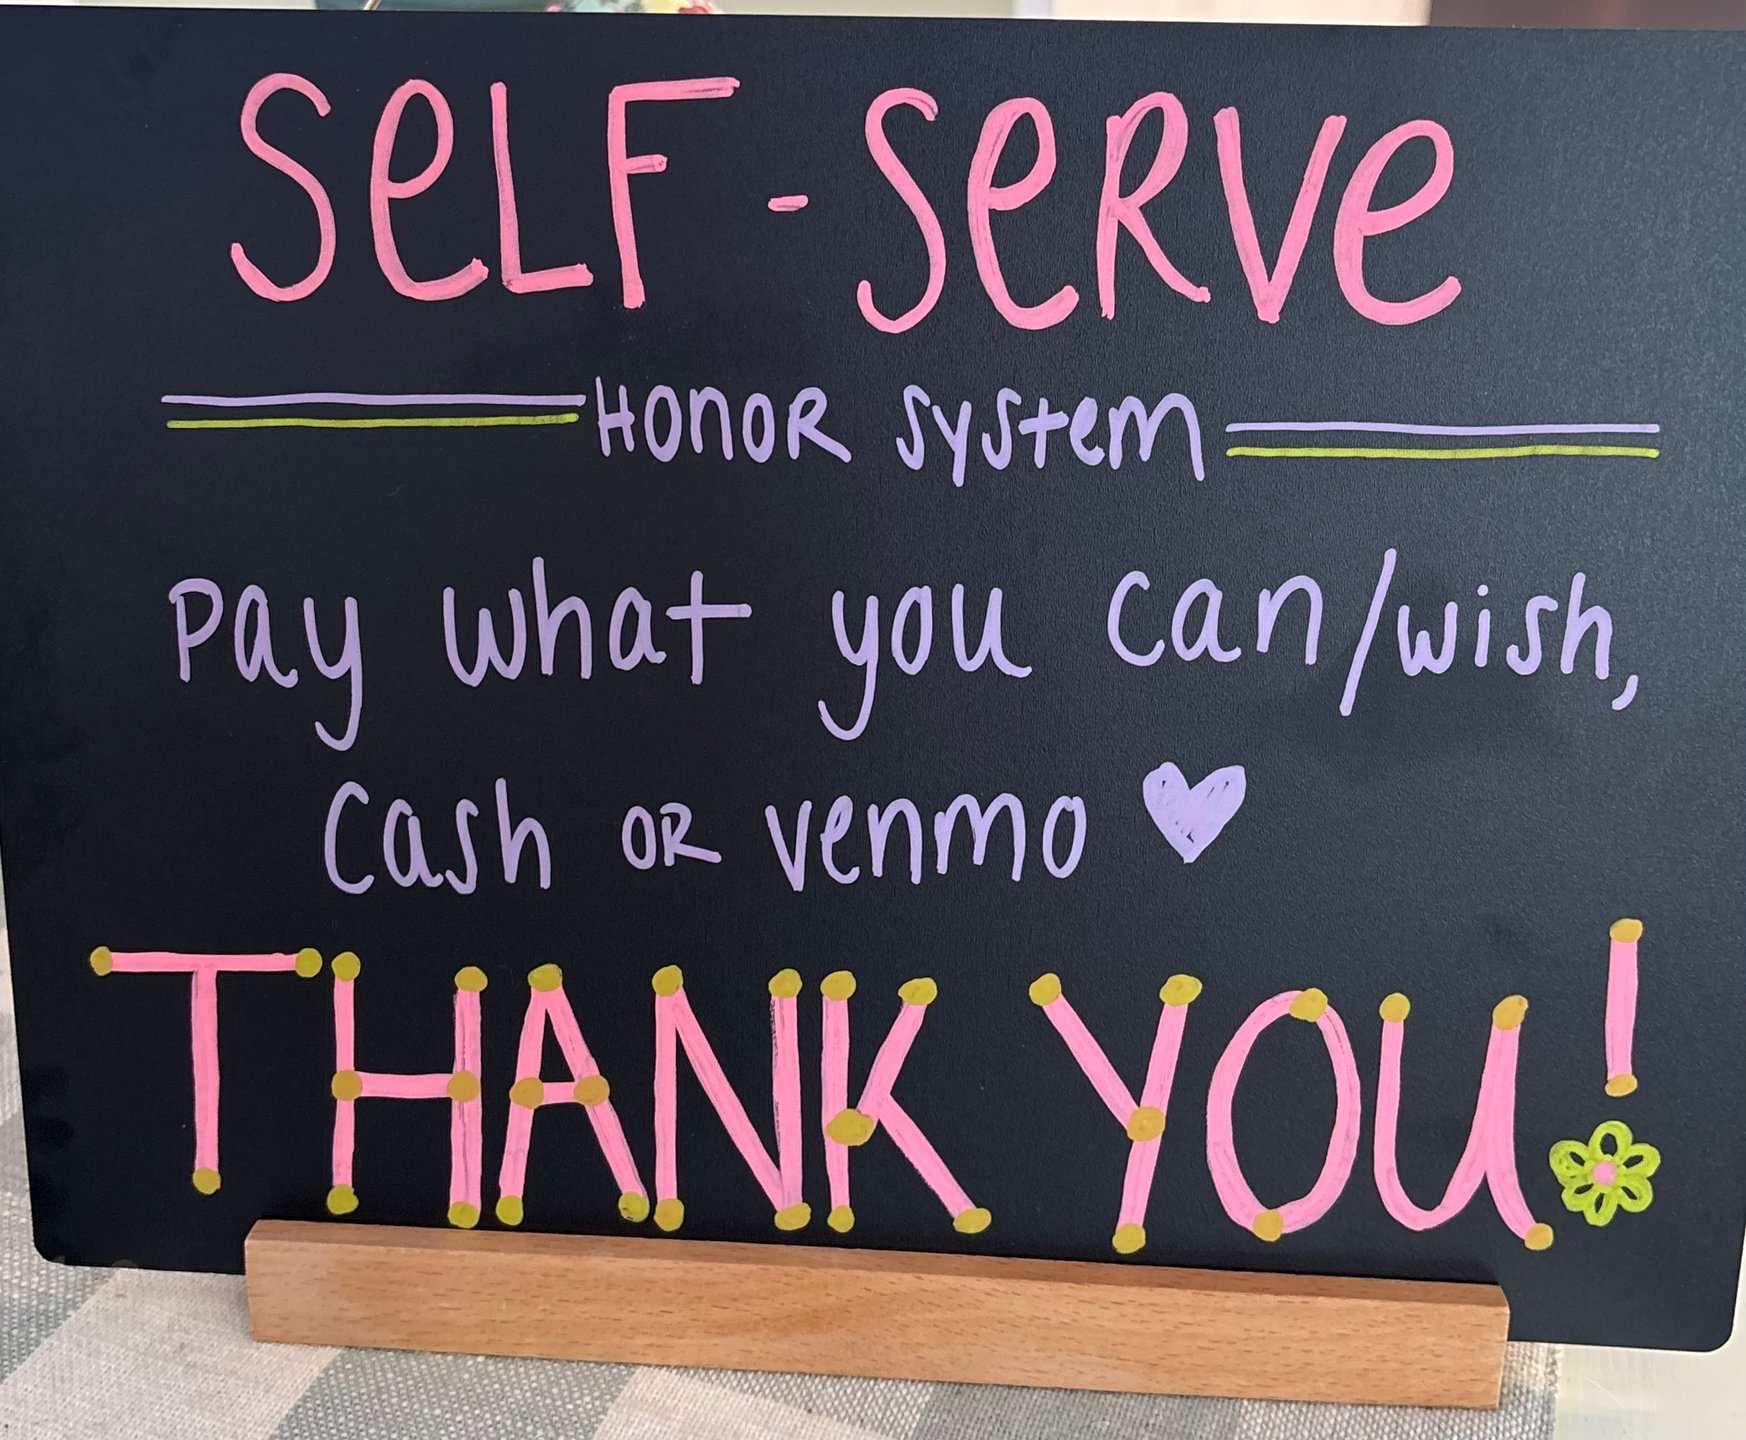 SeLF-SeRVe
HONOR System
Pay what you can/wish,
Cash OR venmo
THANK YOU!